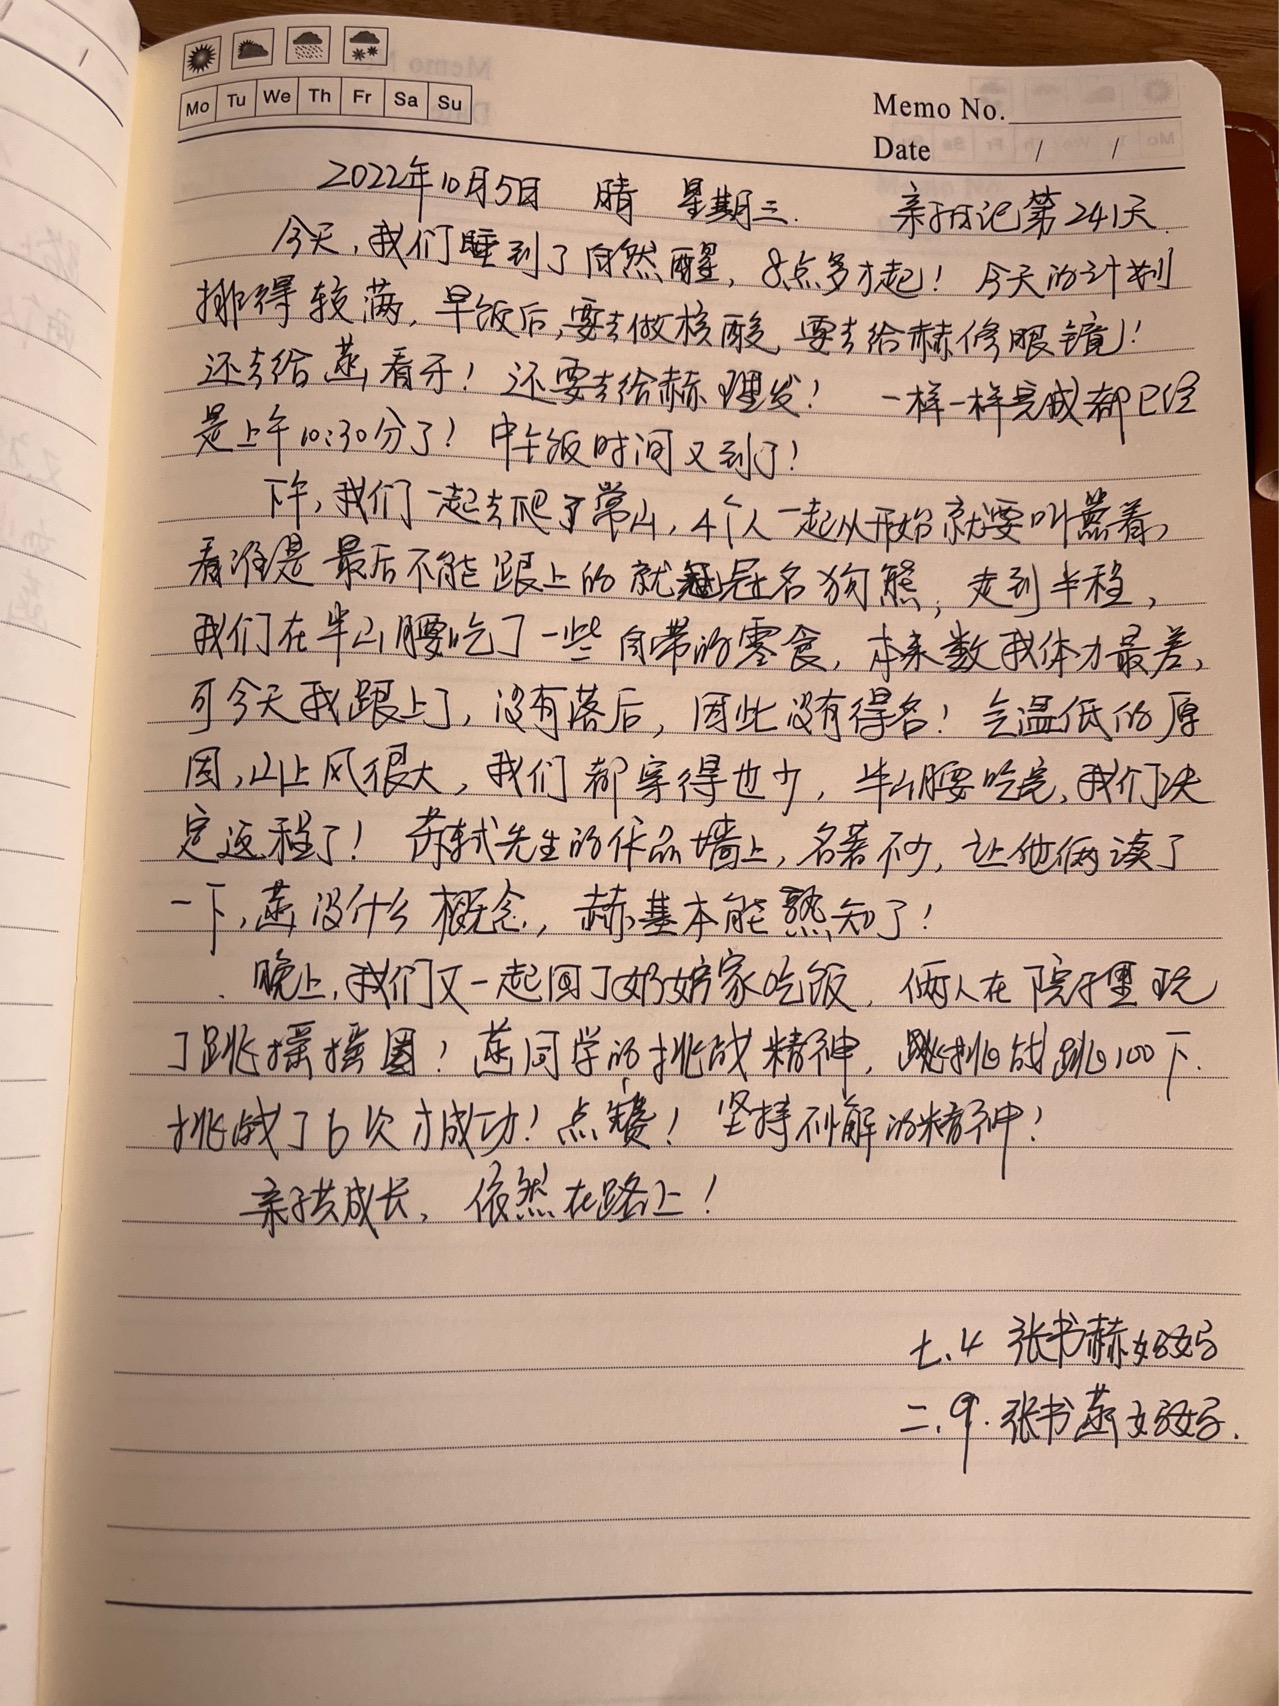 Mo Tu We Th Fr Sa Su
Memo No.
Date / /
2022年10月5日 晴 星期三. 亲子日记第241天.
今天,我们睡到了自然醒,8点多才起!今天的计划
排得较满,早饭后,要去做核酸,要去给赫修眼镜!
还去给燕看牙!还要去给赫理发!一样一样完成都已经
是上午10:30分了!中午饭时间又到了!
下午,我们一起去爬了常山,4个人一起从开始就要叫嚣着,
看谁是最后不能跟上的就冠名狗熊,走到半程,
我们在半山腰吃了一些自带的零食,本来数我体力最差,
可今天我跟上了,没有落后,因此没有得名!气温低的原
因,山上风很大,我们都穿得也少,半山腰吃完,我们决
定返程了!苏轼先生的作品墙上,名著不少,让他俩读了
一下,燕没什么概念,赫基本能熟知了!
晚上,我们又一起回了奶奶家吃饭,俩人在院子里玩
了跳摇摇圈!燕同学的挑战精神,跳挑战跳100下.
挑战了6次才成功!点赞!坚持不懈的精神!
亲子共成长,依然在路上!
七.4 张书赫妈妈
二.9.张书燕妈妈.